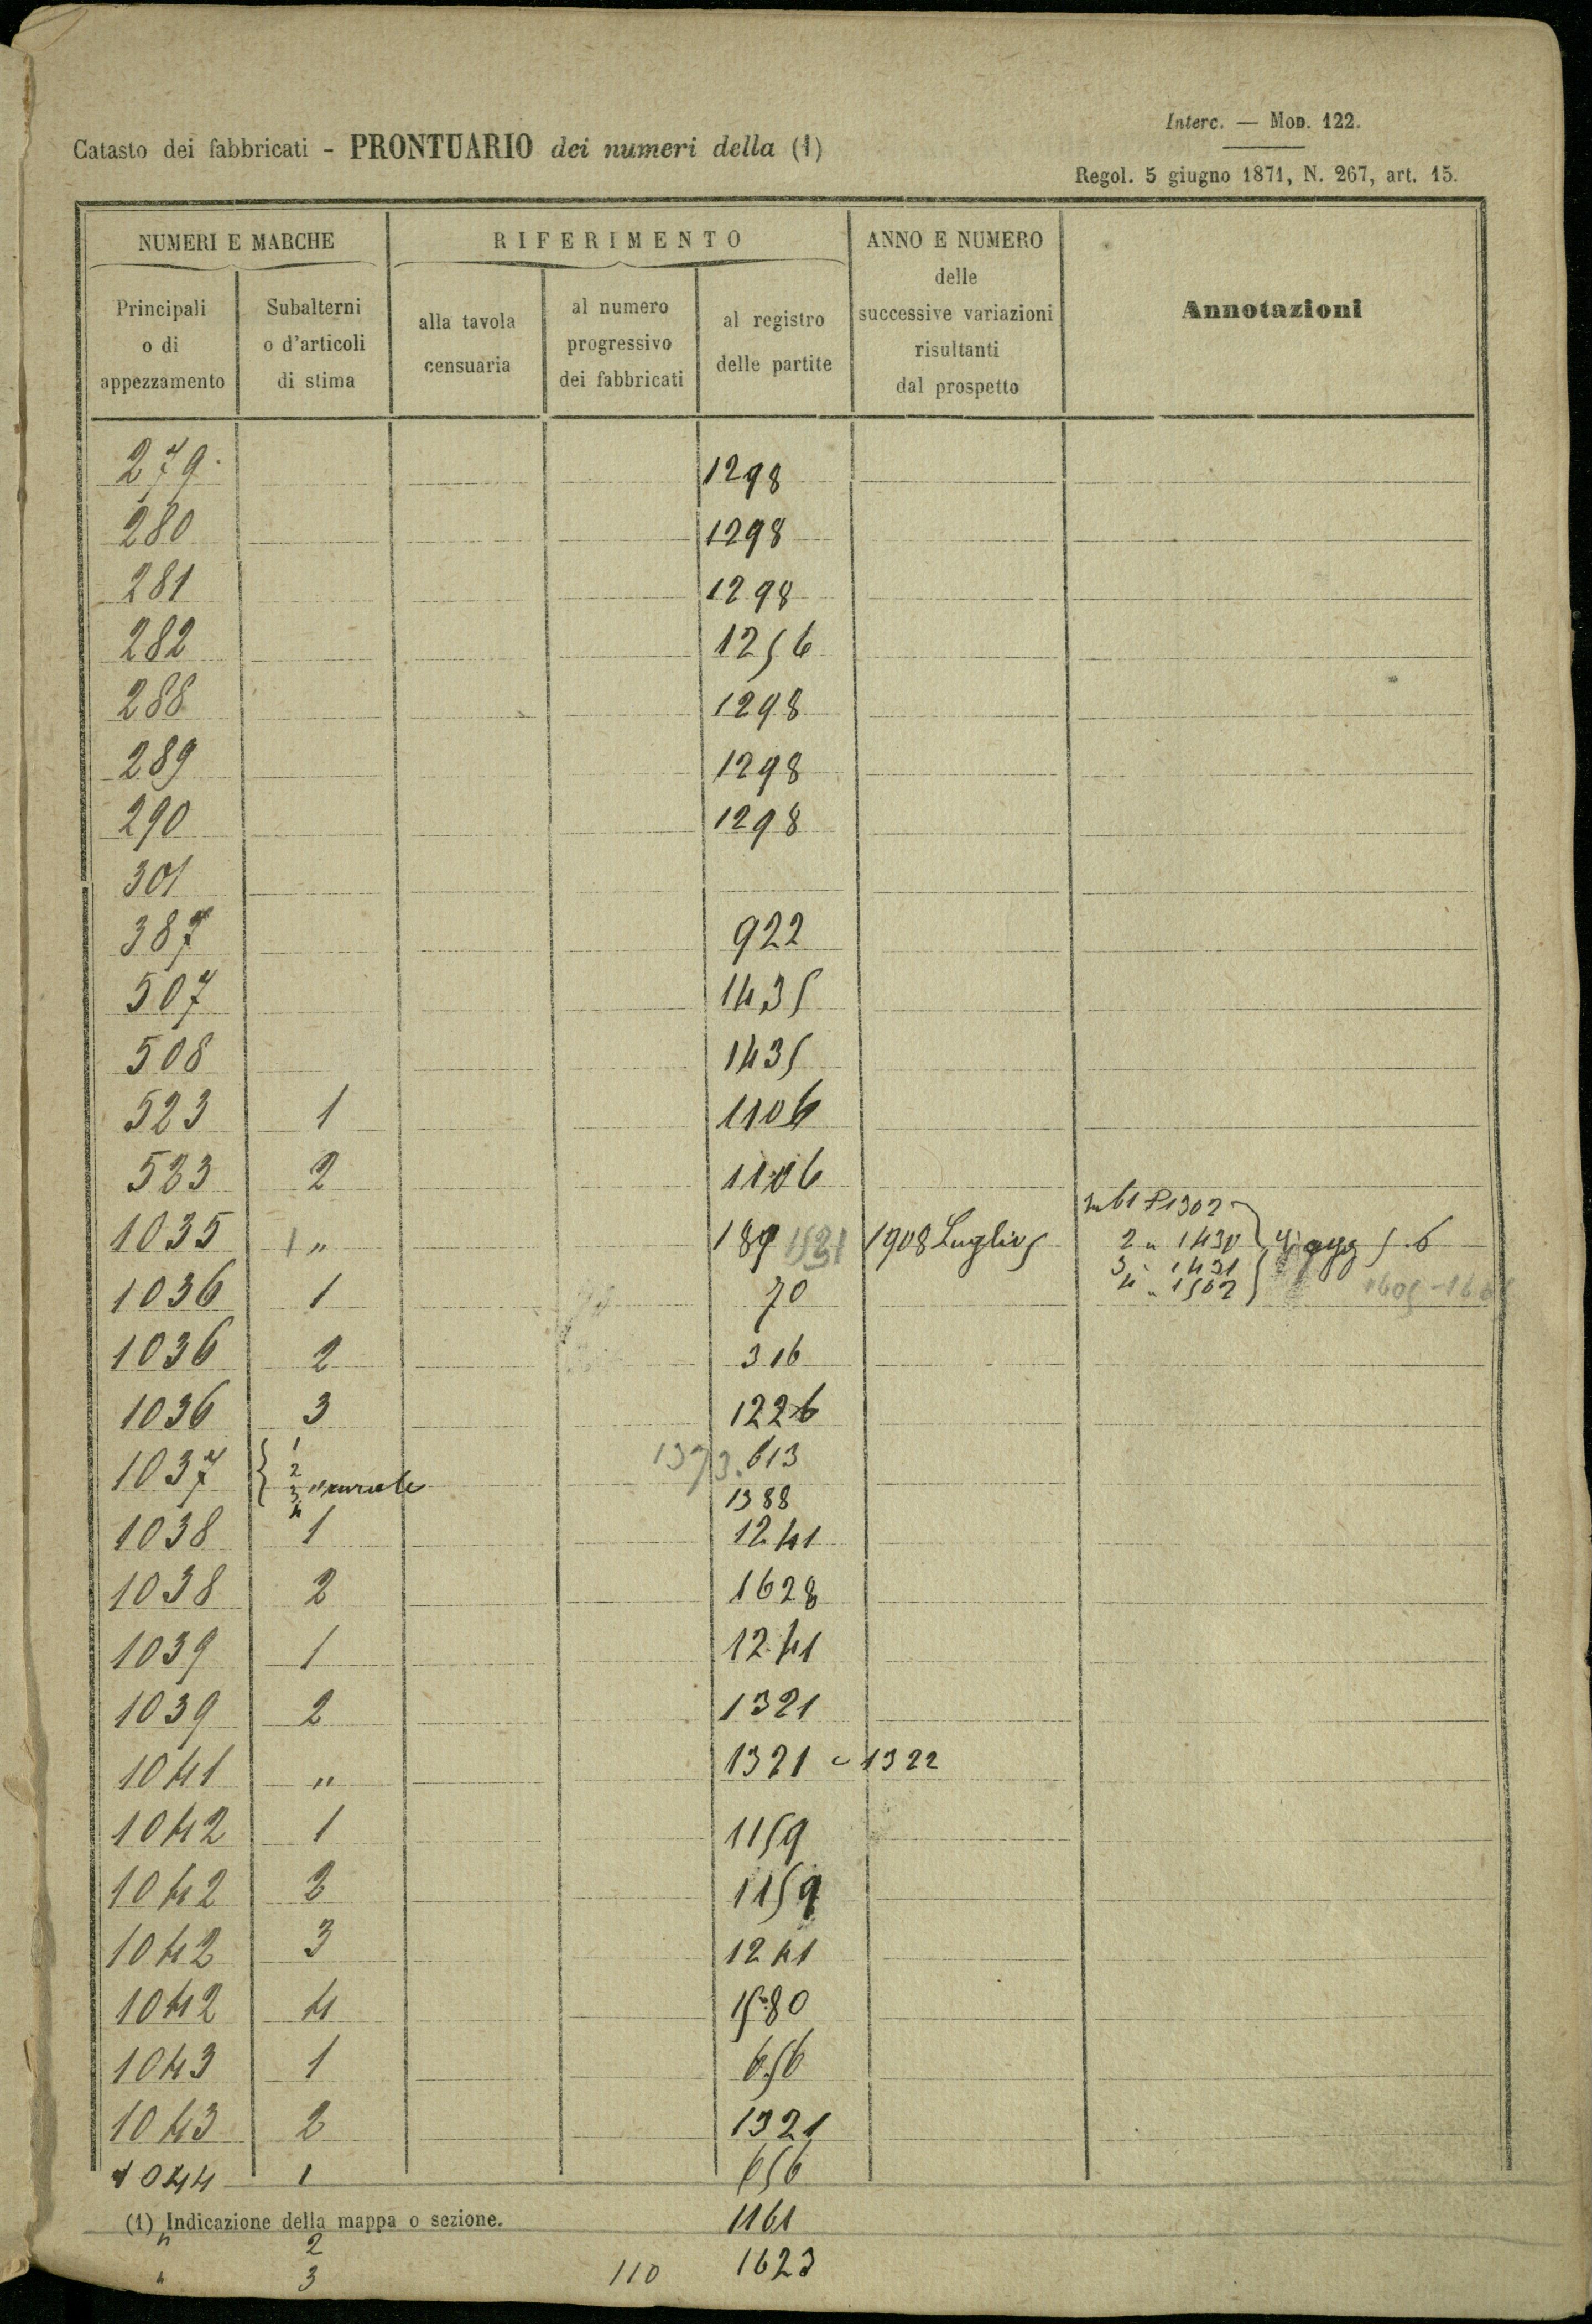 Interc. — Mod. 122.
Catasto dei fabbricati - PRONTUARIO dei numeri della (1)
Regol. 5 giugno 1871, N. 267, art. 15.
NUMERI E MARCHE
RIFERIMENTO
ANNO E NUMERO
delle
successive variazioni
risultanti
dal prospetto
Annotazioni
Principali
o di
appezzamento
Subalterni
o d'articoli
di stima
alla tavola
censuaria
al numero
progressivo
dei fabbricati
al registro
delle partite
279 1298
280 1298
281 1298
282 1256
288 1298
289 1298
290 1298
301
387 922
507 1435
508 1435
523 1 1106
523 2 1106
sub 1 P 1302
1035 1 " 189 1908 Luglio 5 2 " 1430
3 " 1431
1036 1 70 4 " 1502
1036 2 316
1036 3 1226
1
1037 2 1373. 613
3 " rurale 1388
4
1038 1 1241
1038 2 1628
1039 1 1241
1039 2 1321
1041 " 1321 - 1322
1042 1 1159
1042 2 1159
1042 3 1241
1042 4 1580
1043 1 656
1043 2 1321
1044 1 656
(1) Indicazione della mappa o sezione. 1161
" 2
" 3 110 1623